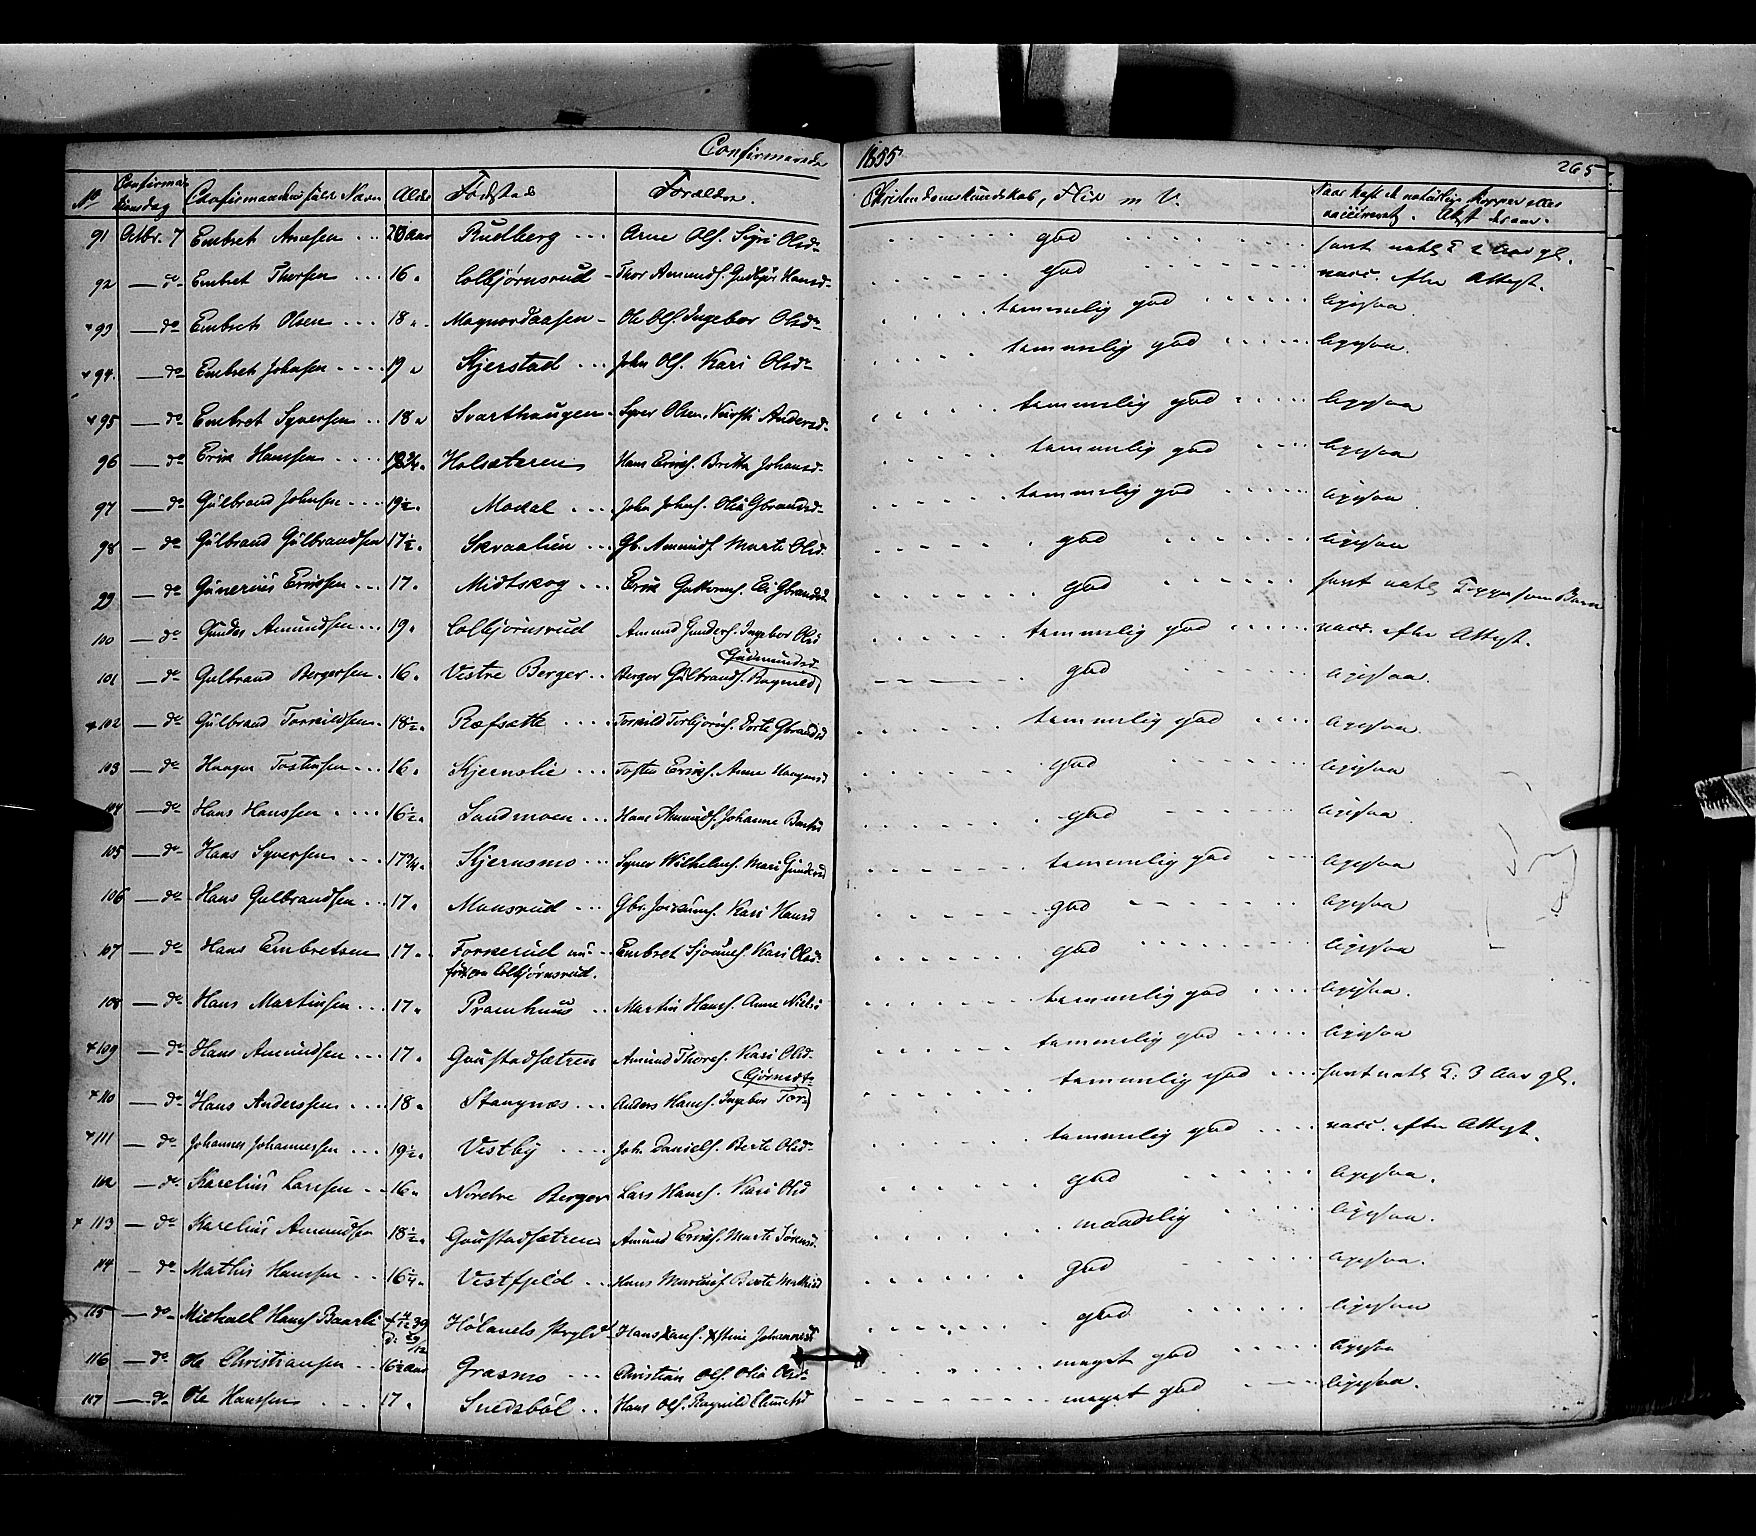 Confirmerede 1855 265
No Confirmationsdag Confirmandens fulde Navn Alder Fødested Forældre Christendomskundskab, Flid m. V.
91 Octbr. 7 Embret Arnesen 20 Aar Rudberg Arne Ols. Siri Olsd. god havt natl.
92 do Embret Thorsen 16 Colbjørnsrud Thor Amunds. Hansd. god vacc. efter Attest.
+ 93 do Embret Olsen 18 Magnordaasen Ole Ols. Ingebor Olsd. temmelig god ligesaa
+ 94 do Embret Johnsen 19 Skjerstad John Ols. Kari Olsd. temmelig god ligesaa
+ 95 do Embret Syversen 18 Svarthaugen Syver Olsen, Kirsti Andersd. temmelig god ligesaa
96 do Erik Hanssen Holsæteren Hans Eriks. Britta Johansd. temmelig god ligesaa
97 do Gulbrand Johnsen 19½ Moxal John Johns. Olia Gbrandsd. temmelig god ligesaa
98 do Gulbrand Gulbrandsen 17½ Skraalien Gb. Amunds. Marte Olsd. god ligesaa
99 do Gunerius Erikssen 17 Midtskog Erik Eli Gbrandsd. god havt natl. som Barn
100 do Gunder Amundsen 19 Colbjørnsrud Amund Gunders. Ingebor Olsd. temmelig god vacc. efter Attest.
Gudmundsd.
101 do Gulbrand Bergersen 16 Vestre Berger Berger Gulbrands. Ragnild god ligesaa
+ 102 do Gulbrand Torkildsen 18½ Ræfsætte Torkild Torbjørns. Dorte Gbrandsd temmelig god ligesaa
103 do Haagen Tostensen 16 Kjernslie Tosten Eriks. Anne Haagensd god ligesaa
104 do Hans Hanssen 16½ Sandmoen Hans Amunds. Johanne god ligesaa
105 do Hans Syversen 17¾ Kjernsmo Syver Wilhelms. Mari Gundersd temmelig god ligesaa
106 do Hans Gulbrandsen 17 Monsrud Gbr. Kari Hansd god ligesaa
107 do Hans Embretsen 17 Forkerud nu Embret Kari Olsd. god ligesaa
før paa Colbjørnsrud.
108 do Hans Martinsen 17 Pramhuus Martin Hans. Anne temmelig god ligesaa
+ 109 do Hans Amundsen 17 Goustadsætren Amund Thores. Kari Olsd. temmelig god ligesaa
bjørnsdt.
+ 110 do Hans Anderssen 18 Stangnæs Anders Hans. Ingebor Tor temmelig god havt natl. 3 Aar gl.
+ 111 do Johannes Johannessen 19½ Vestby Joh. Daniels. Berte Olsd. temmelig god vacc. efter Attest.
112 do Karelius Larssen 16 Nordre Berger Lars Hans. Kari Olsd god ligesaa
+ 113 do Karelius Amundsen 18½ Goustadsætren Amund Eriks. Marte Sørensd. maadelig ligesaa
114 do Mathis Hanssen 16¼ Vestfjeld Hans Berte god ligesaa
115 do Michael Hans. Baarli Hølands Hans Hans. Johannesd god ligesaa
116 do Ole Christiansen 16½ Aar Grasmo Christian Ols. Olia Olsd. meget god ligesaa
117 do Ole Hanssen 17 Snedsbøl Hans Ols. Ragnild meget god ligesaa